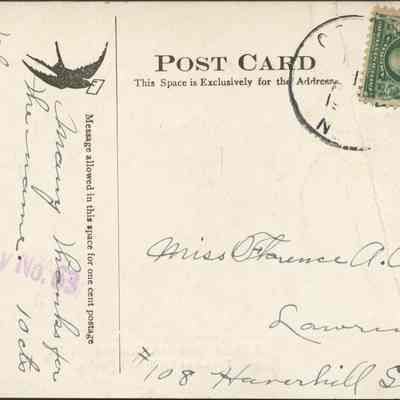 POST CARD
This Space is Exclusively for the Address.
Message allowed in this space for one cent postage
Many thanks for
the name. 10 cts
No. 63
Miss Florence A.
Lawren
#108 Haverhill S